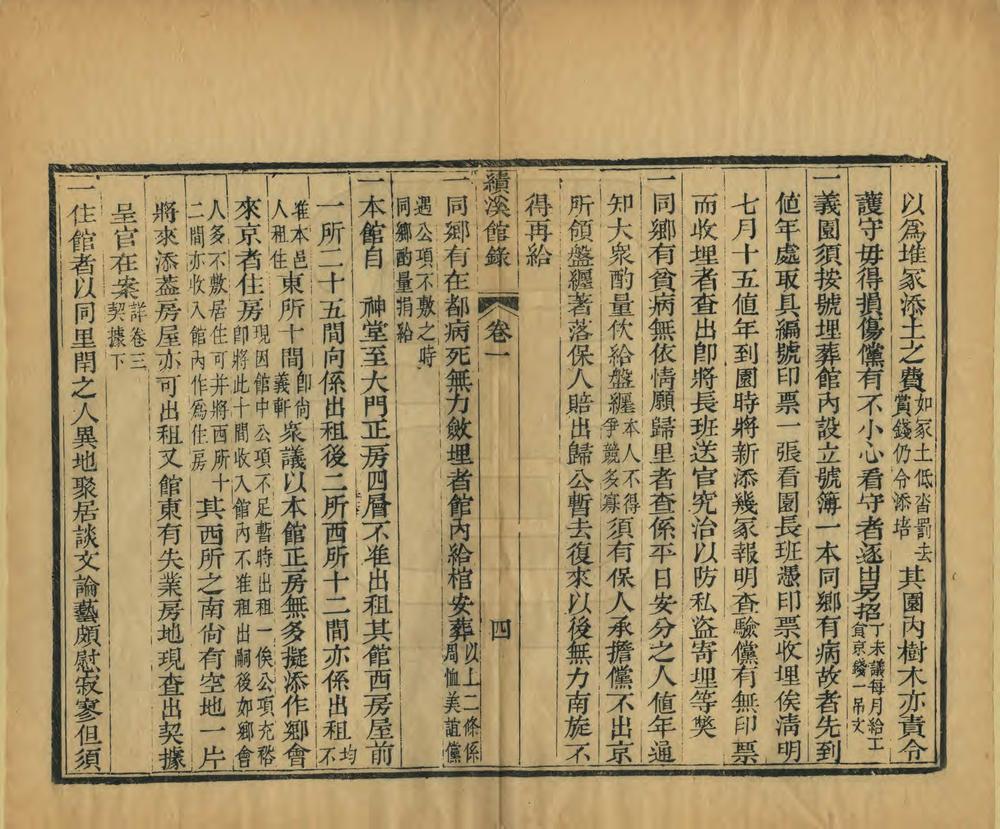 以爲堆冢添土之費如冢土低沓罰去賞錢仍令添培其園内樹木亦責令
護守毋得損傷儻有不小心看守者逐出另招丁未議每月給工食京錢一吊文
一義園須按號埋葬館内設立號簿一本同鄉有病故者先到
値年處取具編號印票一張看園長班憑印票收埋俟淸明
七月十五值年到園時將新添幾冢報明查驗儻有無印票
而收埋者查出卽將長班送官究治以防私盗寄埋等獘
一同鄉有貧病無依情願歸里者查係平日安分之人値年通
知大衆酌量佽給盤纏本人不得爭競多寡須有保人承擔儻不出京
所領盤纏著落保人賠出歸公暫去復來以後無力南旋不
得再給
績溪館錄 卷一 四
一同鄉有在都病死無力斂埋者館内給棺安葬以上二條係周恤美誼儻
遇公項不敷之時同鄉酌量捐給
一本館自 神堂至大門正房四層不准出租其館西房屋前
一所二十五間向係出租後二所西所十二間亦係出租均不
准本邑人租住東所十間卽尙義軒衆議以本館正房無多擬添作鄉會
來京者住房現因館中公項不足暫時出租一俟公項充裕卽將此十間收入館內不准租出嗣後如鄉會
人多不敷居住可幷將西所十二間亦收入館內作爲住房其西所之南尙有空地一片
將來添葢房屋亦可出租又館東有失業房地現查出契據
呈官在案詳卷三契據下
一住館者以同里閈之人異地聚居談文論藝頗慰寂寥但須